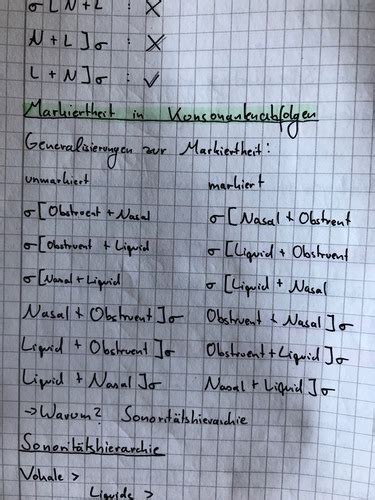 σ[N+L : X
N + L]σ : X
L + N]σ : ✓
Markiertheit in Konsonantenabfolgen
Generalisierungen zur Markiertheit:
unmarkiert markiert
σ[Obstruent + Nasal σ[Nasal + Obstruent
σ[Obstruent + Liquid σ[Liquid + Obstruent
σ[Nasal + Liquid σ[Liquid + Nasal
Nasal + Obstruent]σ Obstruent + Nasal]σ
Liquid + Obstruent]σ Obstruent + Liquid]σ
Liquid + Nasal]σ Nasal + Liquid]σ
→ Warum? Sonoritätshierarchie
Sonoritätshierarchie
Vokale >
Liquide >